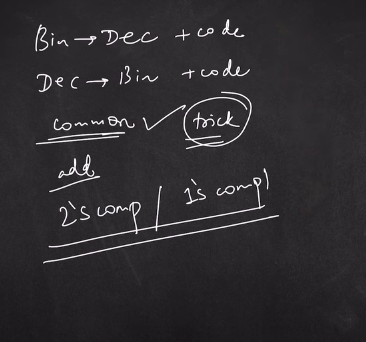 Bin → Dec + code
Dec → Bin + code
common ✓ trick
add
2's comp / 1's compl